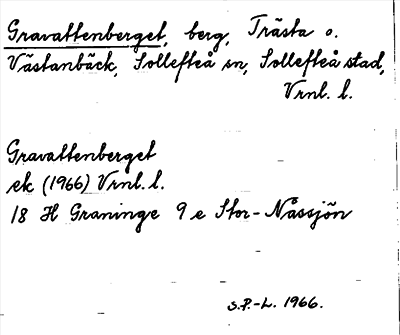 Gravattenberget, berg, Trästa o.
Västanbäck, Sollefteå sn, Sollefteå stad,
Vrnl. l.
Gravattenberget
ek (1966) Vrnl. l.
18 H Graninge 9 e Stor-Nässjön
S.P.-L. 1966.